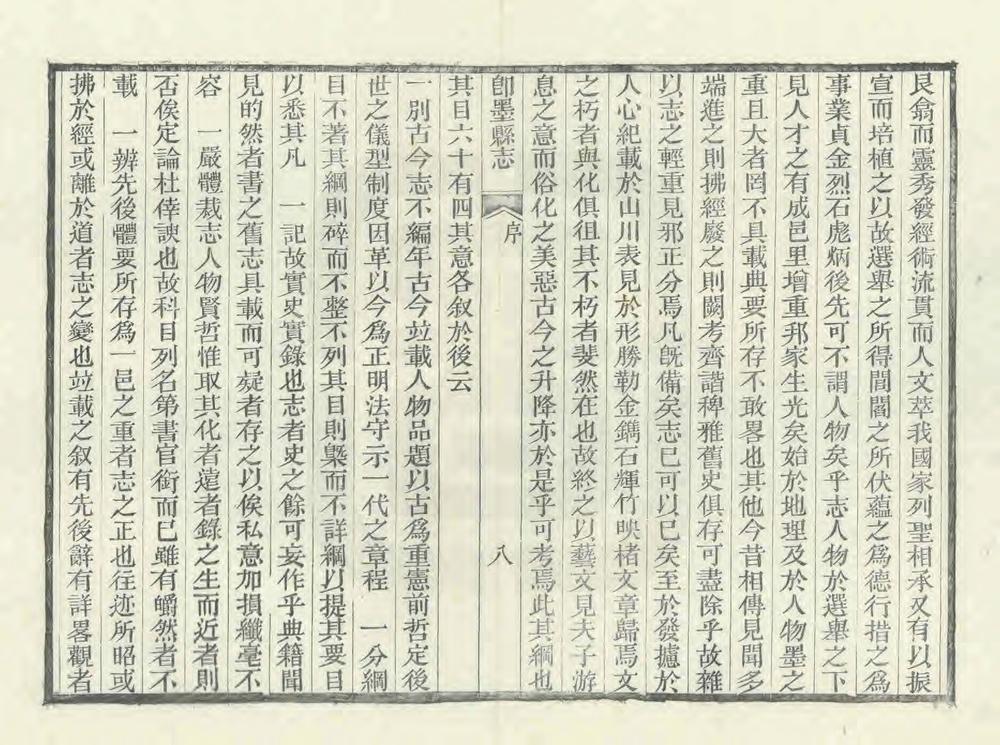 艮翁而靈秀發經術流貫而人文萃我國家列聖相承又有以振
宣而培植之以故選舉之所得閭閻之所伏蘊之爲德行措之爲
事業貞金烈石彪炳後先可不謂人物矣乎志人物於選舉之下
見人才之有成邑里增重邦家生光矣始於地理及於人物墨之
重且大者罔不具載典要所存不敢畧也其他今昔相傳見聞多
端進之則拂經廢之則闕考齊諧稗雅舊史俱存可盡除乎故雜
以志之輕重見邪正分焉凡旣備矣志已可以已矣至於發攄於
人心紀載於山川表見於形勝勒金鐫石輝竹映楮文章歸焉文
之朽者與化俱徂其不朽者斐然在也故終之以藝文見夫子游
息之意而俗化之美惡古今之升降亦於是乎可考焉此其綱也
卽墨縣志 序 八
其目六十有四其意各叙於後云
一別古今志不編年古今竝載人物品題以古爲重憲前哲定後
世之儀型制度因革以今爲正明法守示一代之章程 一分綱
目不著其綱則碎而不整不列其目則槩而不詳綱以提其要目
以悉其凡 一記故實史實錄也志者史之餘可妄作乎典籍聞
見的然者書之舊志具載而可疑者存之以俟私意加損纖毫不
容 一嚴體裁志人物賢哲惟取其化者遠者錄之生而近者則
否俟定論杜倖諛也故科目列名第書官銜而已雖有皭然者不
載 一辨先後體要所存爲一邑之重者志之正也往迹所昭或
拂於經或離於道者志之變也竝載之叙有先後辭有詳畧觀者